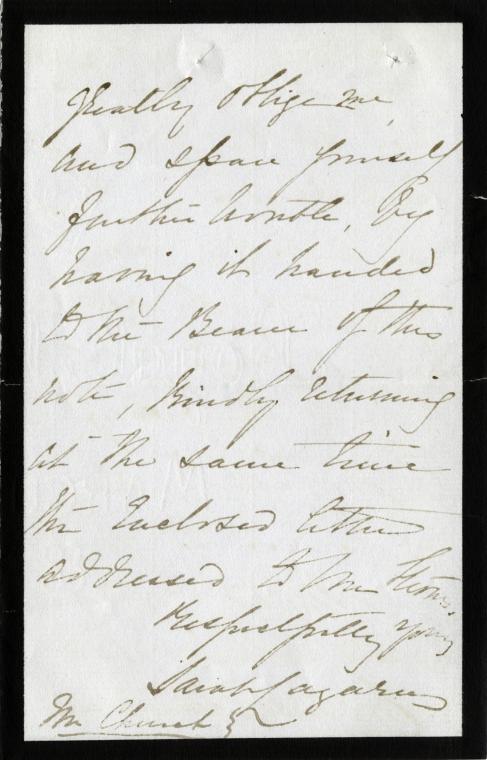 greatly oblige me,
and spare yourself
further trouble, by
having it handed
to the Bearer of this
note, kindly returning
at the same time
the enclosed letter
addressed to Mr
Respectfully yours
Sarah Lazarus
Mr Church